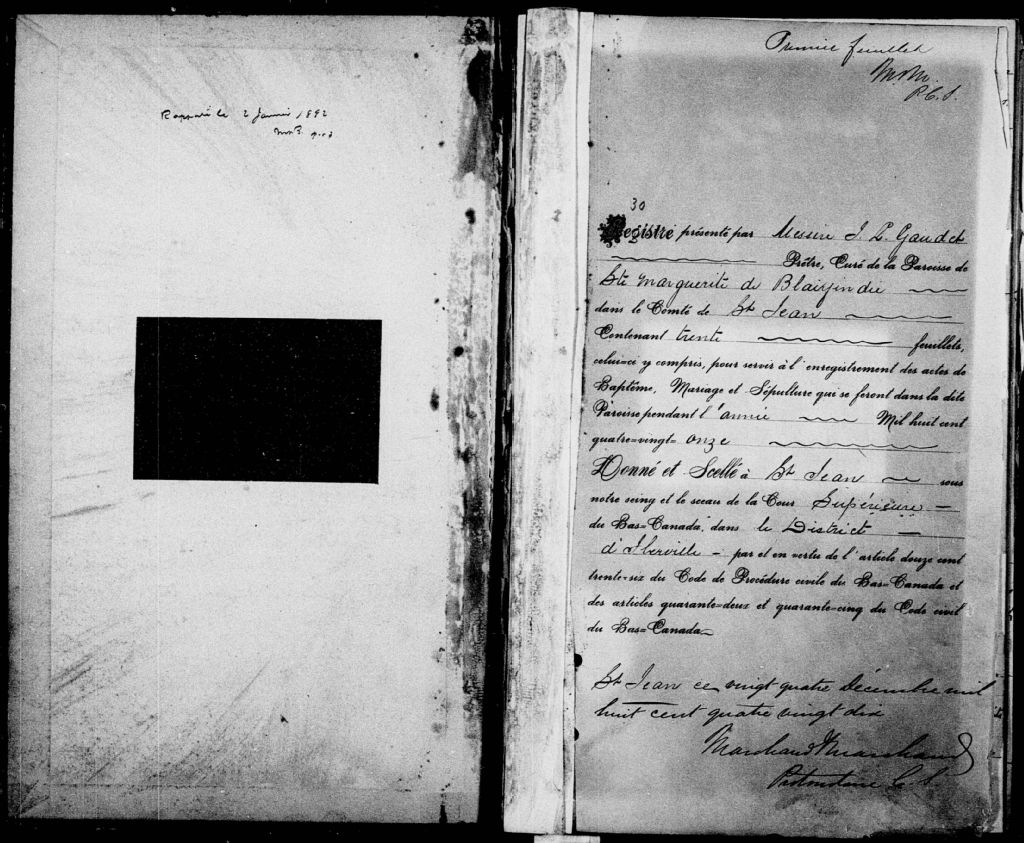 Rapporté le 2 Janvier 1892
Premier feuillet
M. M.
P. C. S.
30
Registre présenté par Messire J. L. Gaudet
Prêtre, Curé de la Paroisse de
Ste Marguerite de Blairfindie
dans le Comté de St Jean
Contenant trente feuillets,
celui-ci y compris, pour servir à l'enregistrement des actes de
Baptême, Mariage et Sépulture qui se feront dans la dite
Paroisse pendant l'année Mil huit cent
quatre-vingt-onze
Donné et Scellé à St Jean sous
notre seing et le sceau de la Cour Supérieure
du Bas-Canada, dans le District
d'Iberville - par et en vertu de l'article douze cent
trente-six du Code de Procédure civile du Bas-Canada et
des articles quarante-deux et quarante-cinq du Code civil
du Bas-Canada
St Jean ce vingt quatre décembre mil
huit cent quatre vingt dix
Marchand & Marchand
Protonotaire C. S.